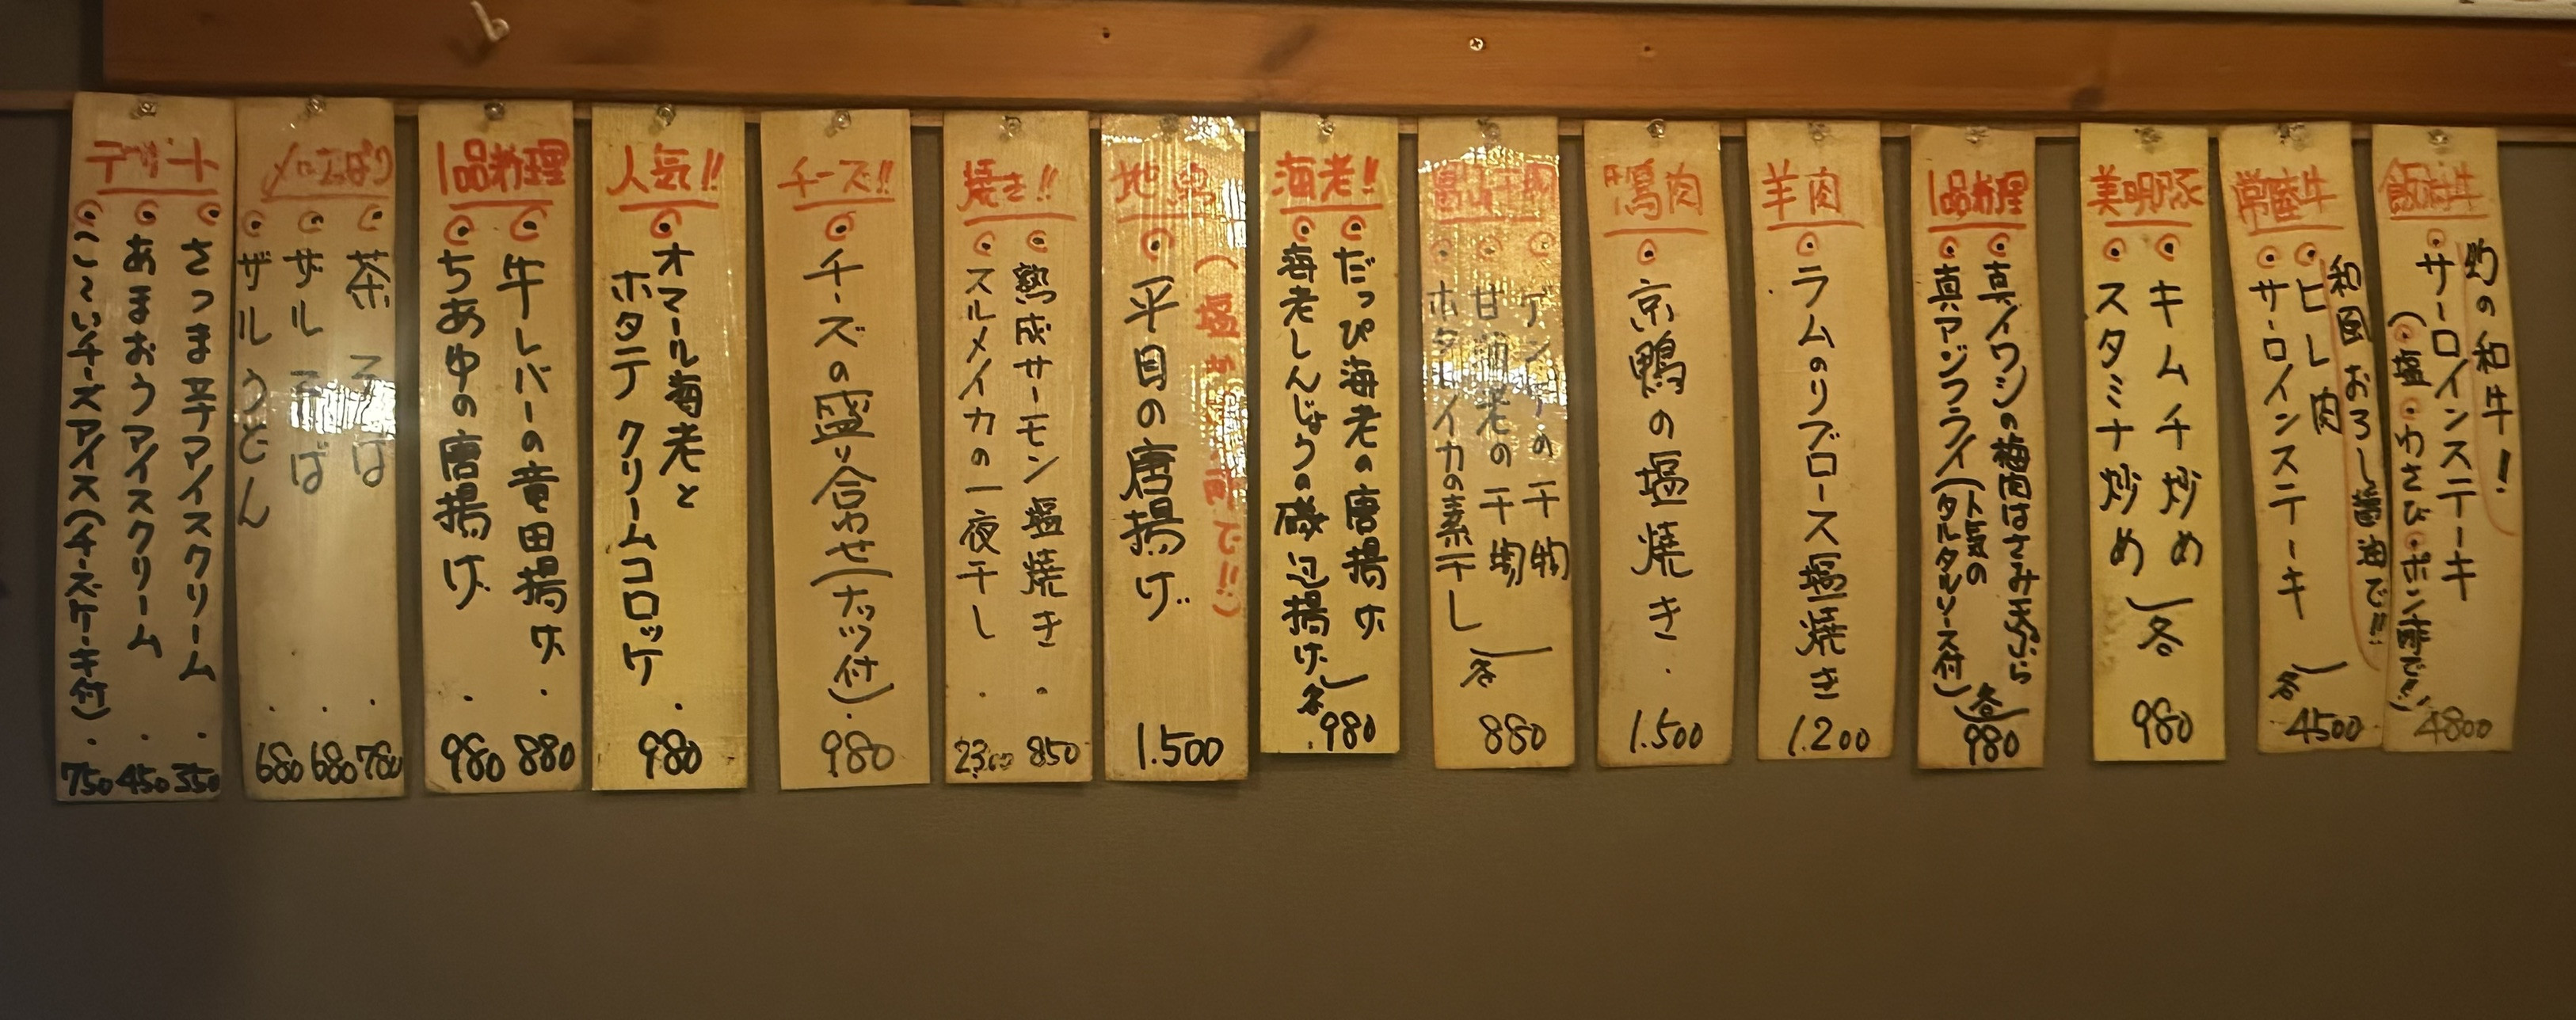 飯村牛
幻の和牛！
サーロインステーキ
(塩・わさび・ポン酢で!!)
4800
常陸牛
和風おろし醤油で!!
ヒレ肉
サーロインステーキ
各
4500
美明豚
キムチ炒め
スタミナ炒め
各
980
1品料理
真イワシの梅肉はさみ天ぷら
真アジフライ(人気のタルタルソース付)
各
980
羊肉
ラムのリブロース塩焼き
1.200
鴨肉
京鴨の塩焼き
1.500
の干物
甘海老の干物
ホタルイカの素干し
各
880
海老!!
だっぴ海老の唐揚げ
海老しんじょうの磯辺揚げ
各
980
地魚
平目の唐揚げ
1.500
焼き!!
熟成サーモン塩焼き
850
スルメイカの一夜干し
チーズ!!
チーズの盛り合わせ(ナッツ付)
980
人気!!
オマール海老と
ホタテクリームコロッケ
980
1品料理
牛レバーの竜田揚げ
880
ちあゆの唐揚げ
980
茶そば
780
ザルそば
680
ザルうどん
680
デザート
さつま芋アイスクリーム
350
あまおうアイスクリーム
450
こ〜いチーズアイス(チーズケーキ付)
750